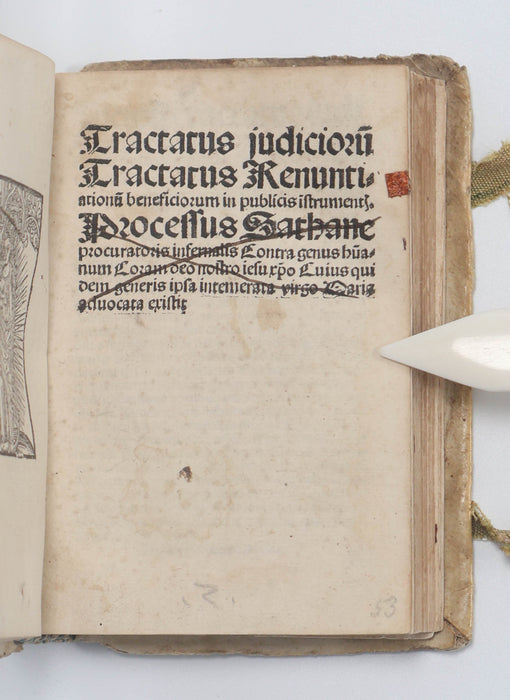 Tractatus judiciorũ
Tractatus Renunti⸗
ationũ beneficiorum in publicis īstrumentꝭ.
Processus Sathane
procuratoris infernalis Contra genus hũa⸗
num Coram deo nostro iesu xp̄o Cuius qui
dem generis ipsa intemerata virgo Maria
advocata existit
53